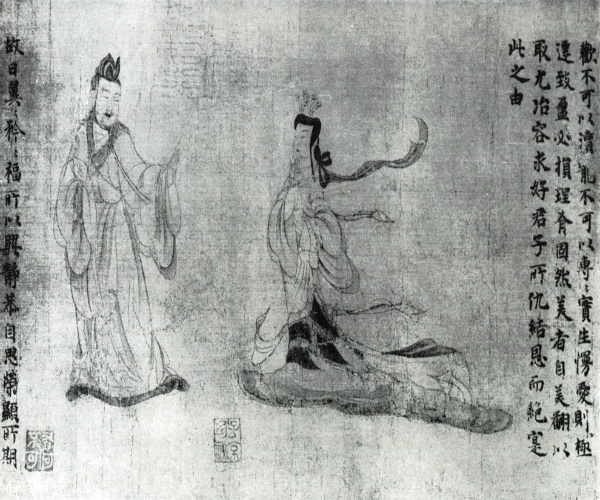 歡不可以瀆寵不可以專〻實生慢愛則極
遷致盈必損理有固然美者自美翩以
取尤冶容求好君子所仇結恩而絕寔
此之由
故曰翼〻矜〻福所以興靜恭自思榮顯所期